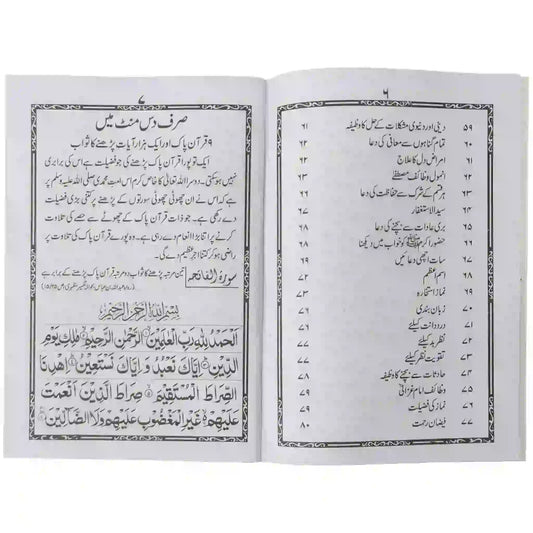 ۶
۵۹ دینی اور دنیوی مشکلات کے حل کا وظیفہ ۶۱
۶۰ تمام گناہوں سے معافی کی دعا ۶۲
۶۱ امراض دل کا علاج ۶۲
۶۲ انمول وظائف مصطفٰے
۶۳ ہر قسم کے شرک سے حفاظت کی دعا ۶۳
سید الاستغفار
بری عادات سے بچنے کی دعا
حضور اکرم ﷺ کو خواب میں دیکھنا
سات اچھی دعائیں
اسم اعظم
نماز استخارہ
زبان بندی
درد دانت کیلئے
نظر بد کیلئے
تقویت نظر کیلئے
حادثات سے بچنے کا وظیفہ
وظائف امام غزالی
نماز کی فضیلت
۷۷ فیضان رحمت ۸۰
۷
صرف دس منٹ میں
۹ قرآن پاک اور ایک ہزار آیات پڑھنے کا ثواب
ایک تو پورا قرآن پاک پڑھنے کی جو فضیلت ہے اس کی برابری
نہیں ہو سکتی۔ دوسرا اللہ تعالٰی کا خاص کرم اس امت محمدی صلی اللہ علیہ وسلم پر
ہے کہ اس نے ان چھوٹی چھوٹی سورتوں کے پڑھنے پر کتنی بڑی فضیلت
دے رکھی ہے۔ جو ذات قرآن پاک کے چھوٹے سے حصے کی تلاوت
کرنے پر اتنا بڑا انعام دے رہی ہے۔ وہ پورے قرآن پاک کی تلاوت پر
راضی ہو کر کتنا اجر عظیم دے گی۔
سورۃ الفاتحہ تین مرتبہ پڑھنے کا ثواب دو مرتبہ قرآن پاک پڑھنے کے برابر ہے
بِسْمِ اللّٰهِ الرَّحْمٰنِ الرَّحِيْمِ
اَلْحَمْدُ لِلّٰهِ رَبِّ الْعٰلَمِيْنَ الرَّحْمٰنِ الرَّحِيْمِ مٰلِكِ يَوْمِ
الدِّيْنِ اِيَّاكَ نَعْبُدُ وَ اِيَّاكَ نَسْتَعِيْنُ اِهْدِنَا
الصِّرَاطَ الْمُسْتَقِيْمَ صِرَاطَ الَّذِيْنَ اَنْعَمْتَ
عَلَيْهِمْ غَيْرِ الْمَغْضُوْبِ عَلَيْهِمْ وَلَا الضَّآلِّيْنَ